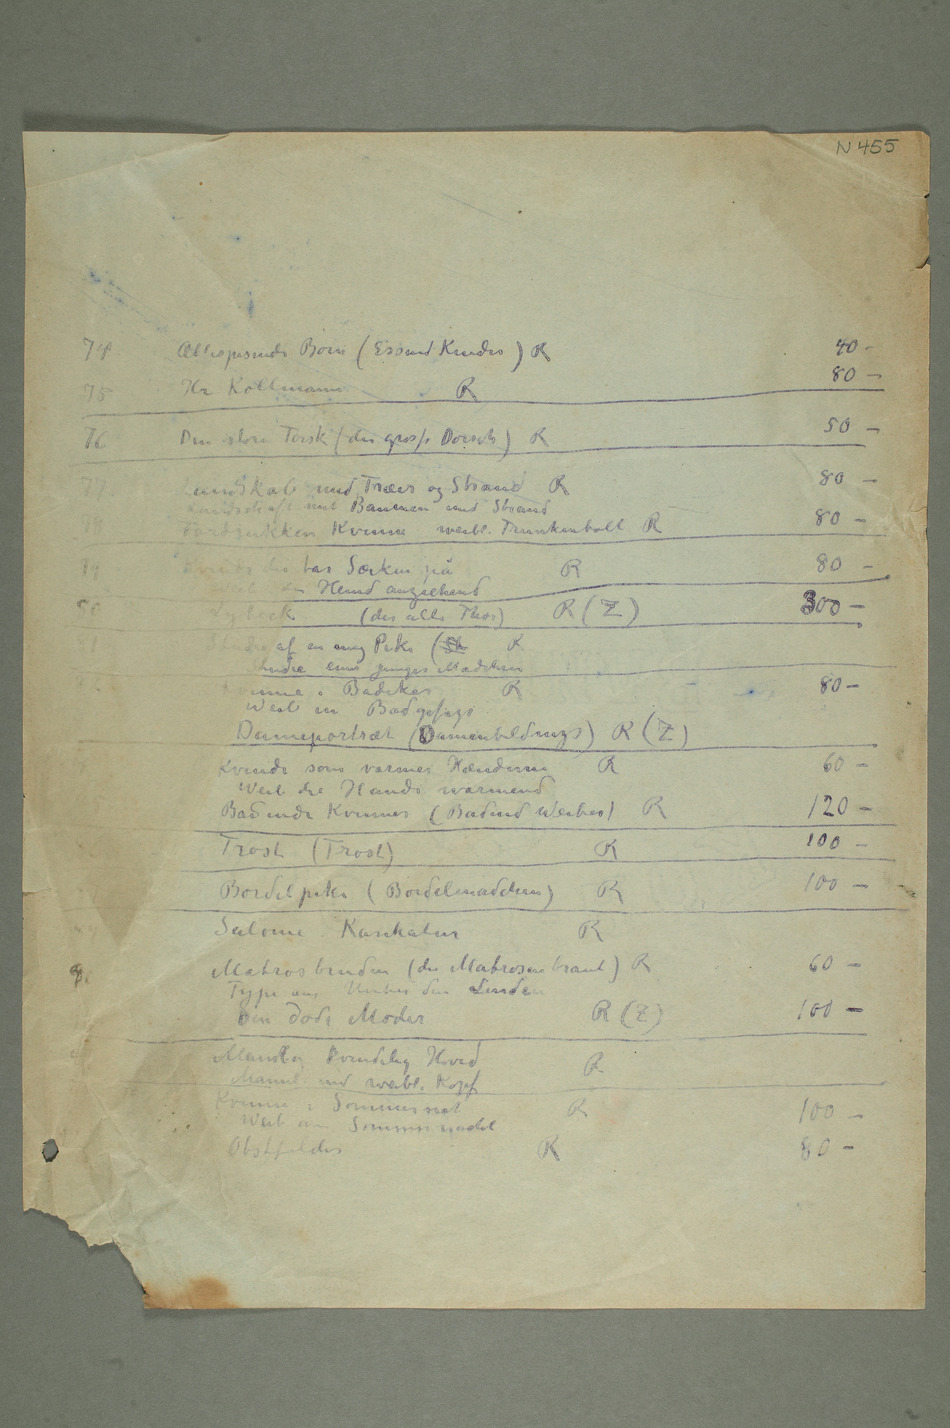 N 455
74 Æblespisende Børn (Essend Kinder) R 40 -
75 Hr Kollmann R 80 -
76 Den store Torsk (der gross Dorsch) R 50 -
77 Landskab med Trær og Strand R 80 -
Landschaft mit Baumen und Strand
Fordrukken Kvinne weibl. Trunkenbolt R 80 -
tar Særken på R 80 -
Hemd anziehend
Lybeck (die alte Thor) R (Z) 300 -
Studie af en ung Pike (St R
Studie eines junges Madchen
i Badekar R 80 -
Weib im
Dameportræt (Damenbildnys) R (Z)
Kvinde som varmer Hænderne R 60 -
Weib die Hande warmend
Badende Kvinner (Badend Weiber) R 120 -
Trost (Trost) R 100 -
Bordelpiker (Bordelmadchen) R 100 -
Salome Karikatur R
Matrosbruden (die Matrosenbraut) R 60 -
Type aus Unter den Linden
Den Døde Moder R (Z) 100 -
Mandlig Kvindelig Hoved R
Mannl. und weibl. Kopf
Kvinne i Sommernat R 100 -
Weib Sommernacht
Obstfelder R 80 -